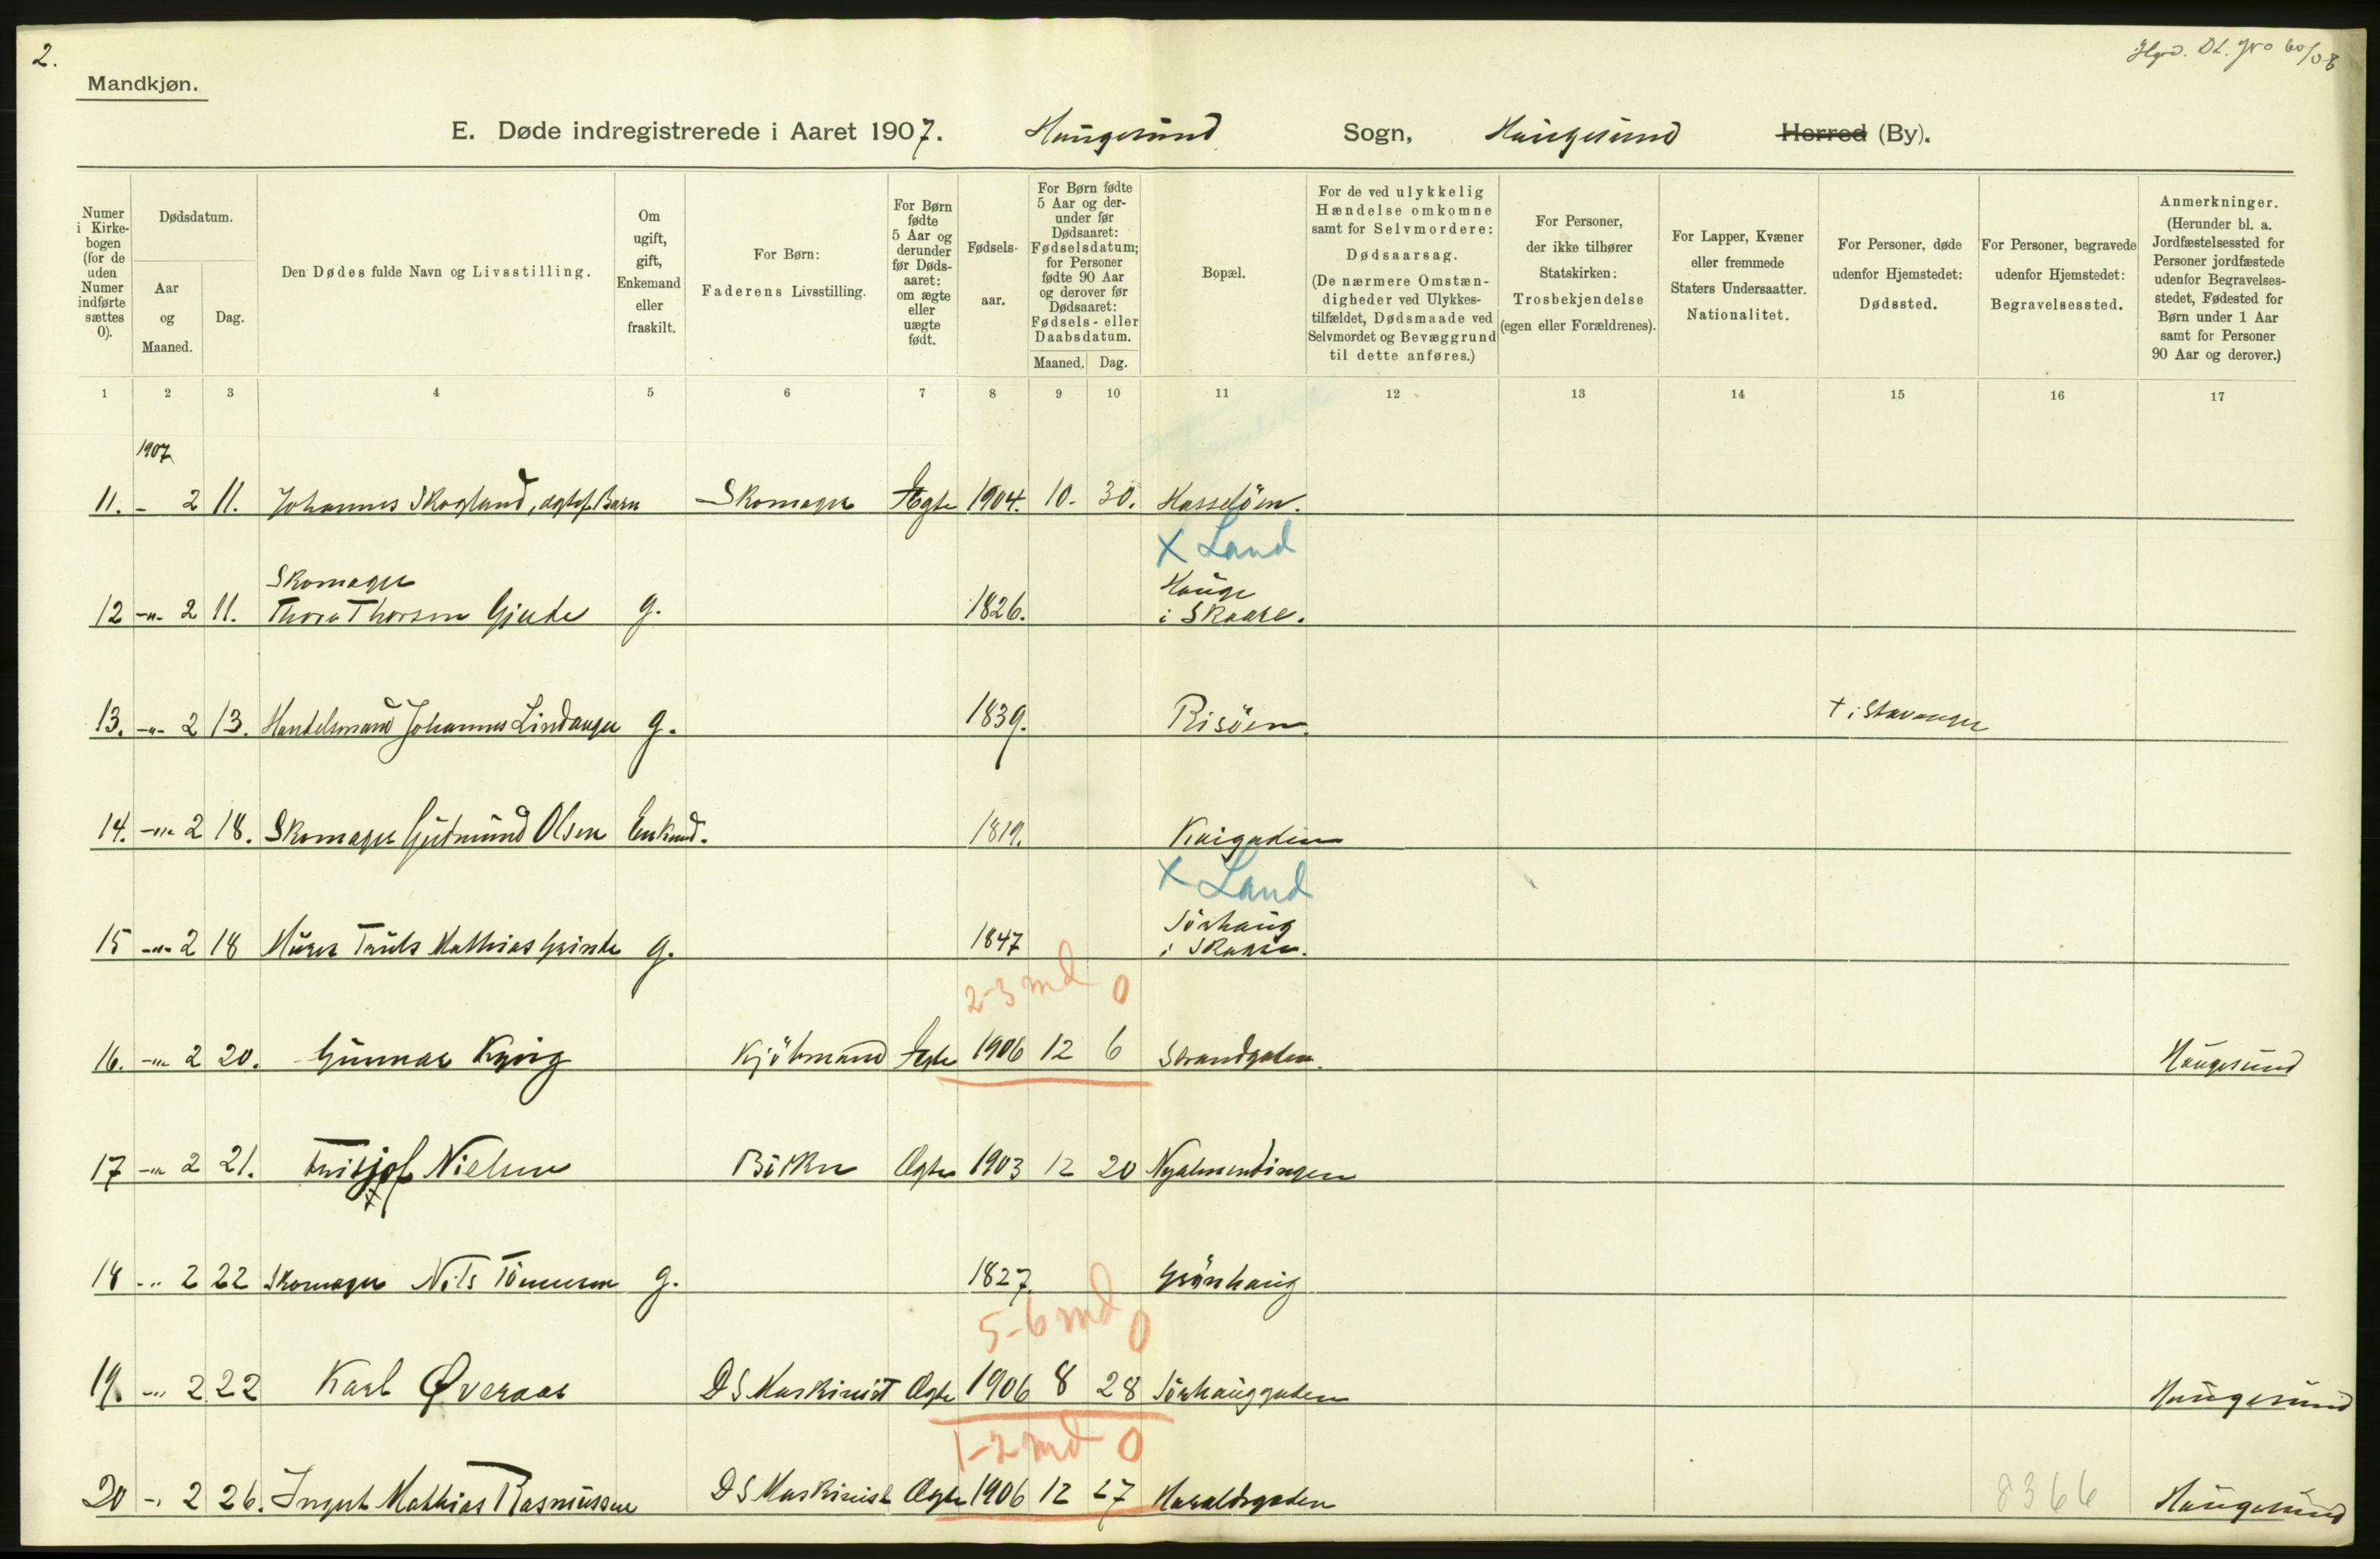 2.
Mandkjøn.
E. Døde indregistrerede i Aaret 1907. Haugesund Sogn, Haugesund Herred (By).
Numer i Kirkebogen (for de uden Numer indførte sættes 0).
Dødsdatum.
Aar og Maaned.
Dag.
Den Dødes fulde Navn og Livsstilling.
Om ugift, gift, Enkemand eller fraskilt.
For Børn: Faderens Livsstilling.
For Børn fødte 5 Aar og derunder før Dødsaaret: om ægte eller uægte født.
Fødselsaar.
For Børn fødte 5 Aar og derunder før Dødsaaret: Fødselsdatum; for Personer fødte 90 Aar og derover før Dødsaaret: Fødsels- eller Daabsdatum.
Maaned. Dag.
Bopæl.
For de ved ulykkelig Hændelse omkomne samt for Selvmordere: Dødsaarsag. (De nærmere Omstændigheder ved Ulykkestilfældet, Dødsmaade ved Selvmordet og Bevæggrund til dette anføres.)
For Personer, der ikke tilhører Statskirken: Trosbekjendelse (egen eller Forældrenes).
For Lapper, Kvæner eller fremmede Staters Undersaatter. Nationalitet.
For Personer, døde udenfor Hjemstedet: Dødssted.
For Personer, begravede udenfor Hjemstedet: Begravelsessted.
Anmerkninger. (Herunder bl. a. Jordfæstelsessted for Personer jordfæstede udenfor Begravelsesstedet, Fødested for Børn under 1 Aar samt for Personer 90 Aar og derover.)
1 2 3 4 5 6 7 8 9 10 11 12 13 14 15 16 17
1907
11. - 2 11. Johannes Skogland, Barn Skomager Ægte 1904. 10. 30. Hasseløen.
X Land
Skomager Hauge
12 -"- 2 11. Thore Thorsen Gjerde g. 1826. i Skaare.
13. -"- 2 13. Handelsmand Johannes Lindanger g. 1839. Risöen. † i Stavanger
14. -"- 2 18. Skomager Gudmund Olsen Enkemd. 1819. Kaigaden
X Land
Sörhaug
15 -"- 2 18 Murer Mathias Grinde g. 1847 i Skaare.
2-3 md 0
16. -"- 2 20. Gunnar Kyvig Kjöbmand Ægte 1906 12 6 Strandgaden. Haugesund
17 -"- 2 21. Fritjof Nielsen Bödker Ægte 1903 12 20 Nyalmendingen
18 -"- 2 22 Skomager Nils Tönnesen g. 1827. Grönhaug
5-6 md 0
19. -"- 2 22 Karl Øveraas D S Maskinist Ægte 1906 8 28 Sörhauggaden Haugesund
1-2 md 0
20 -"- 2 26. Mathias Rasmussen D S Maskinist Ægte 1906 12 27 Haraldsgaden 8366 Haugesund